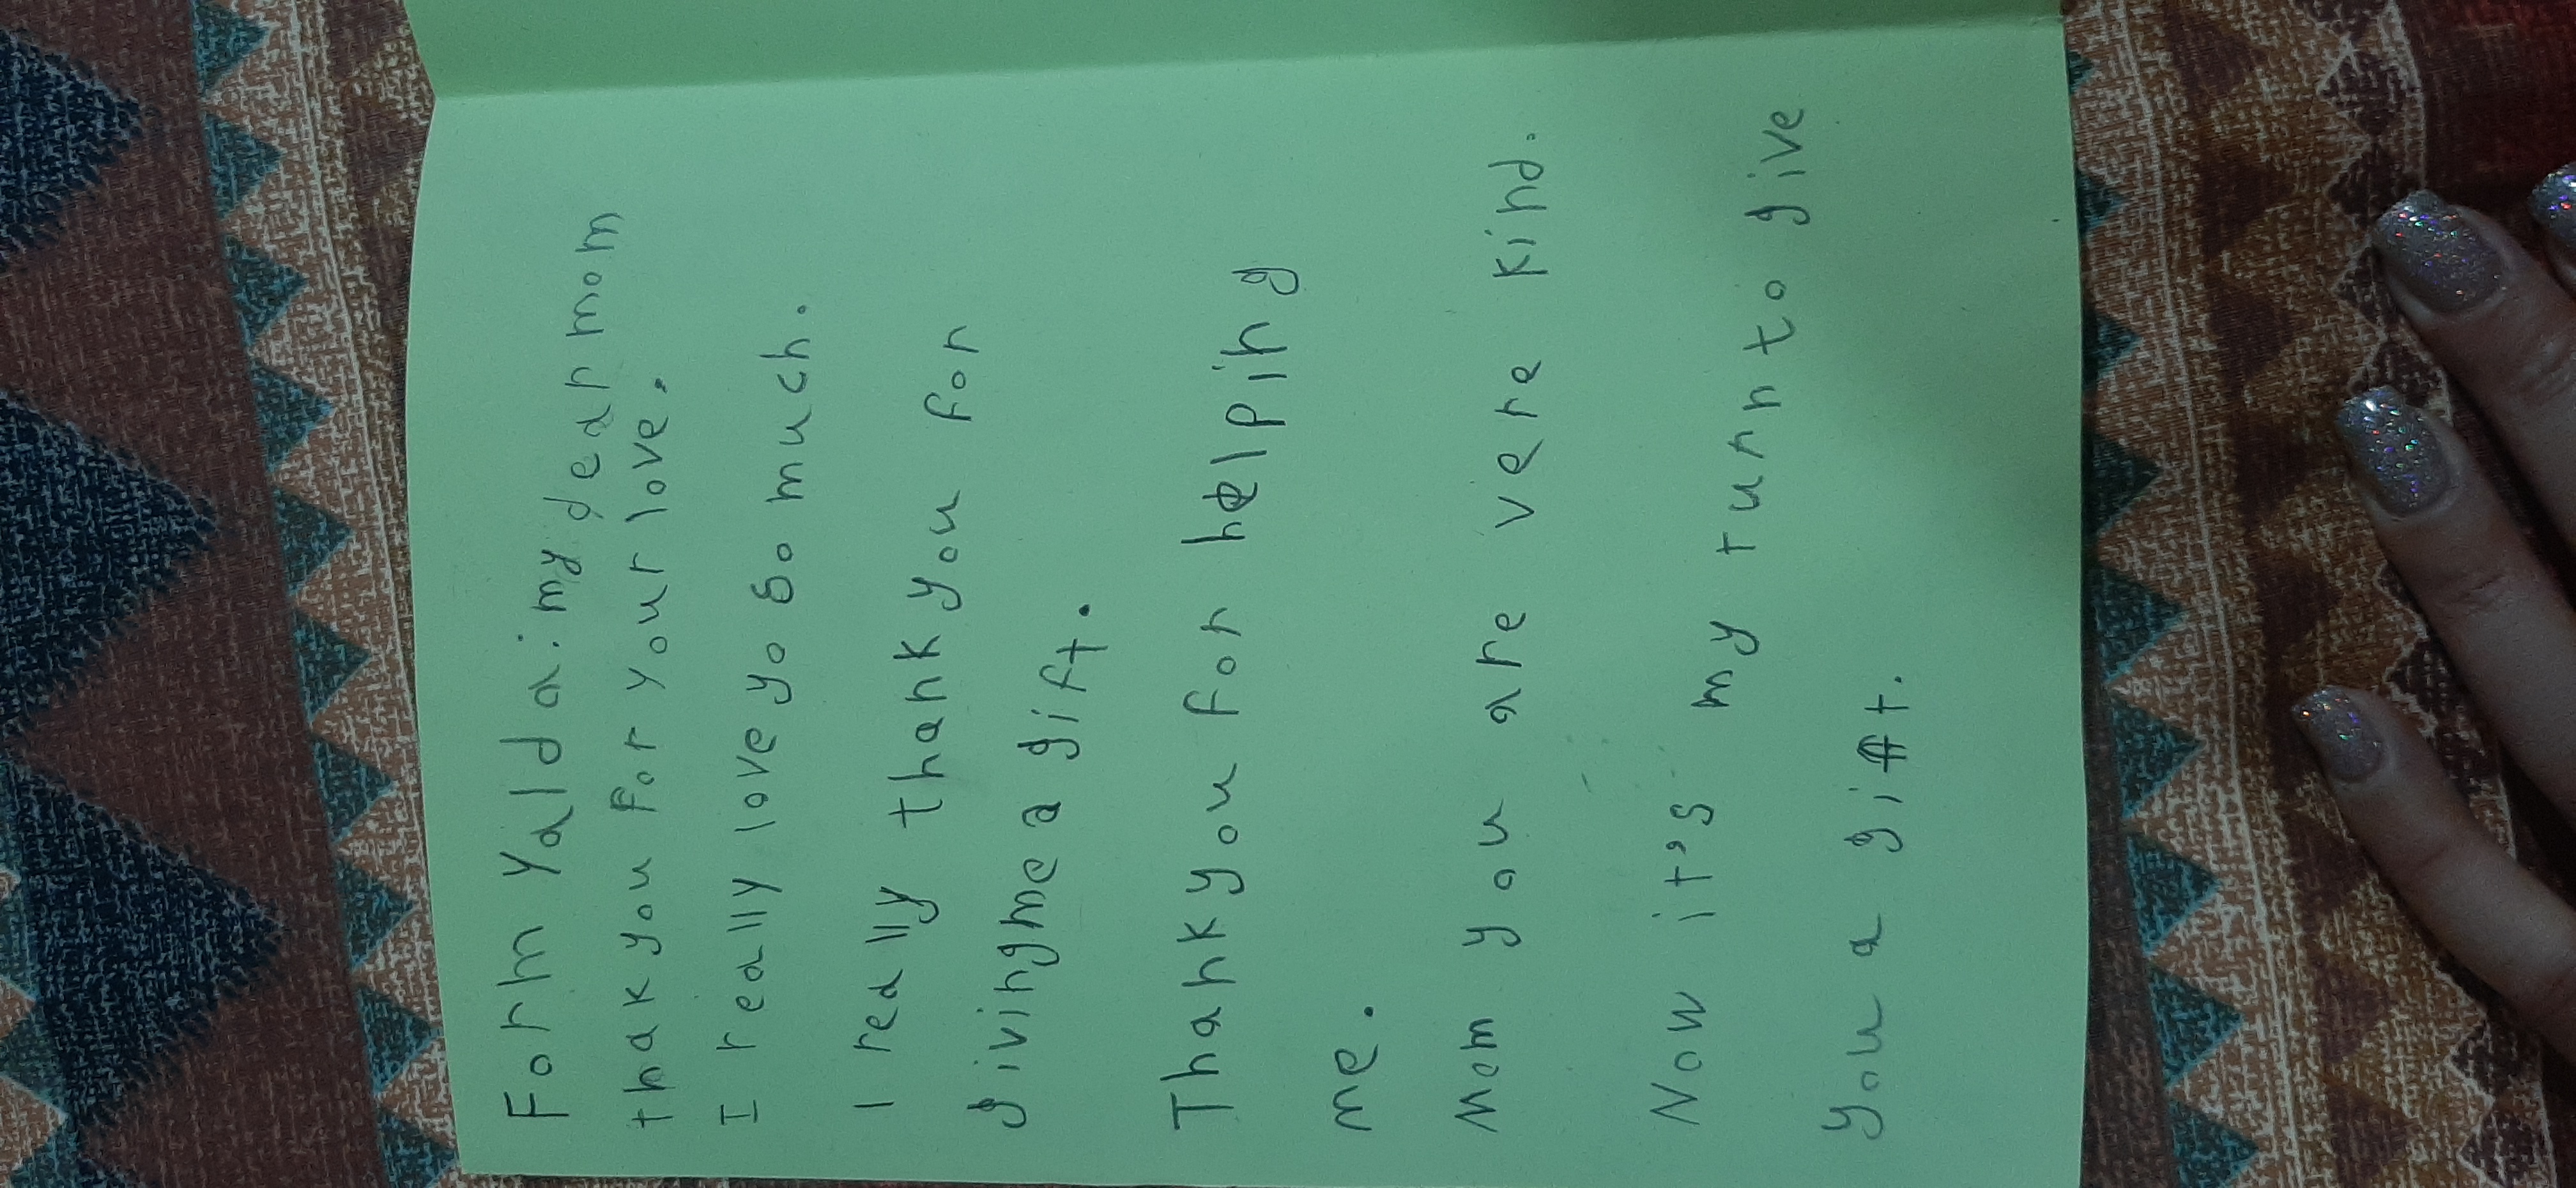 Form Yalda: my dear mom
thak you For your love.
I really love yo so much.
I really thank you for
giving me a gift.
Thank you for helping
me.
Mom you are vere kind.
Now it's my turn to give
you a gift.